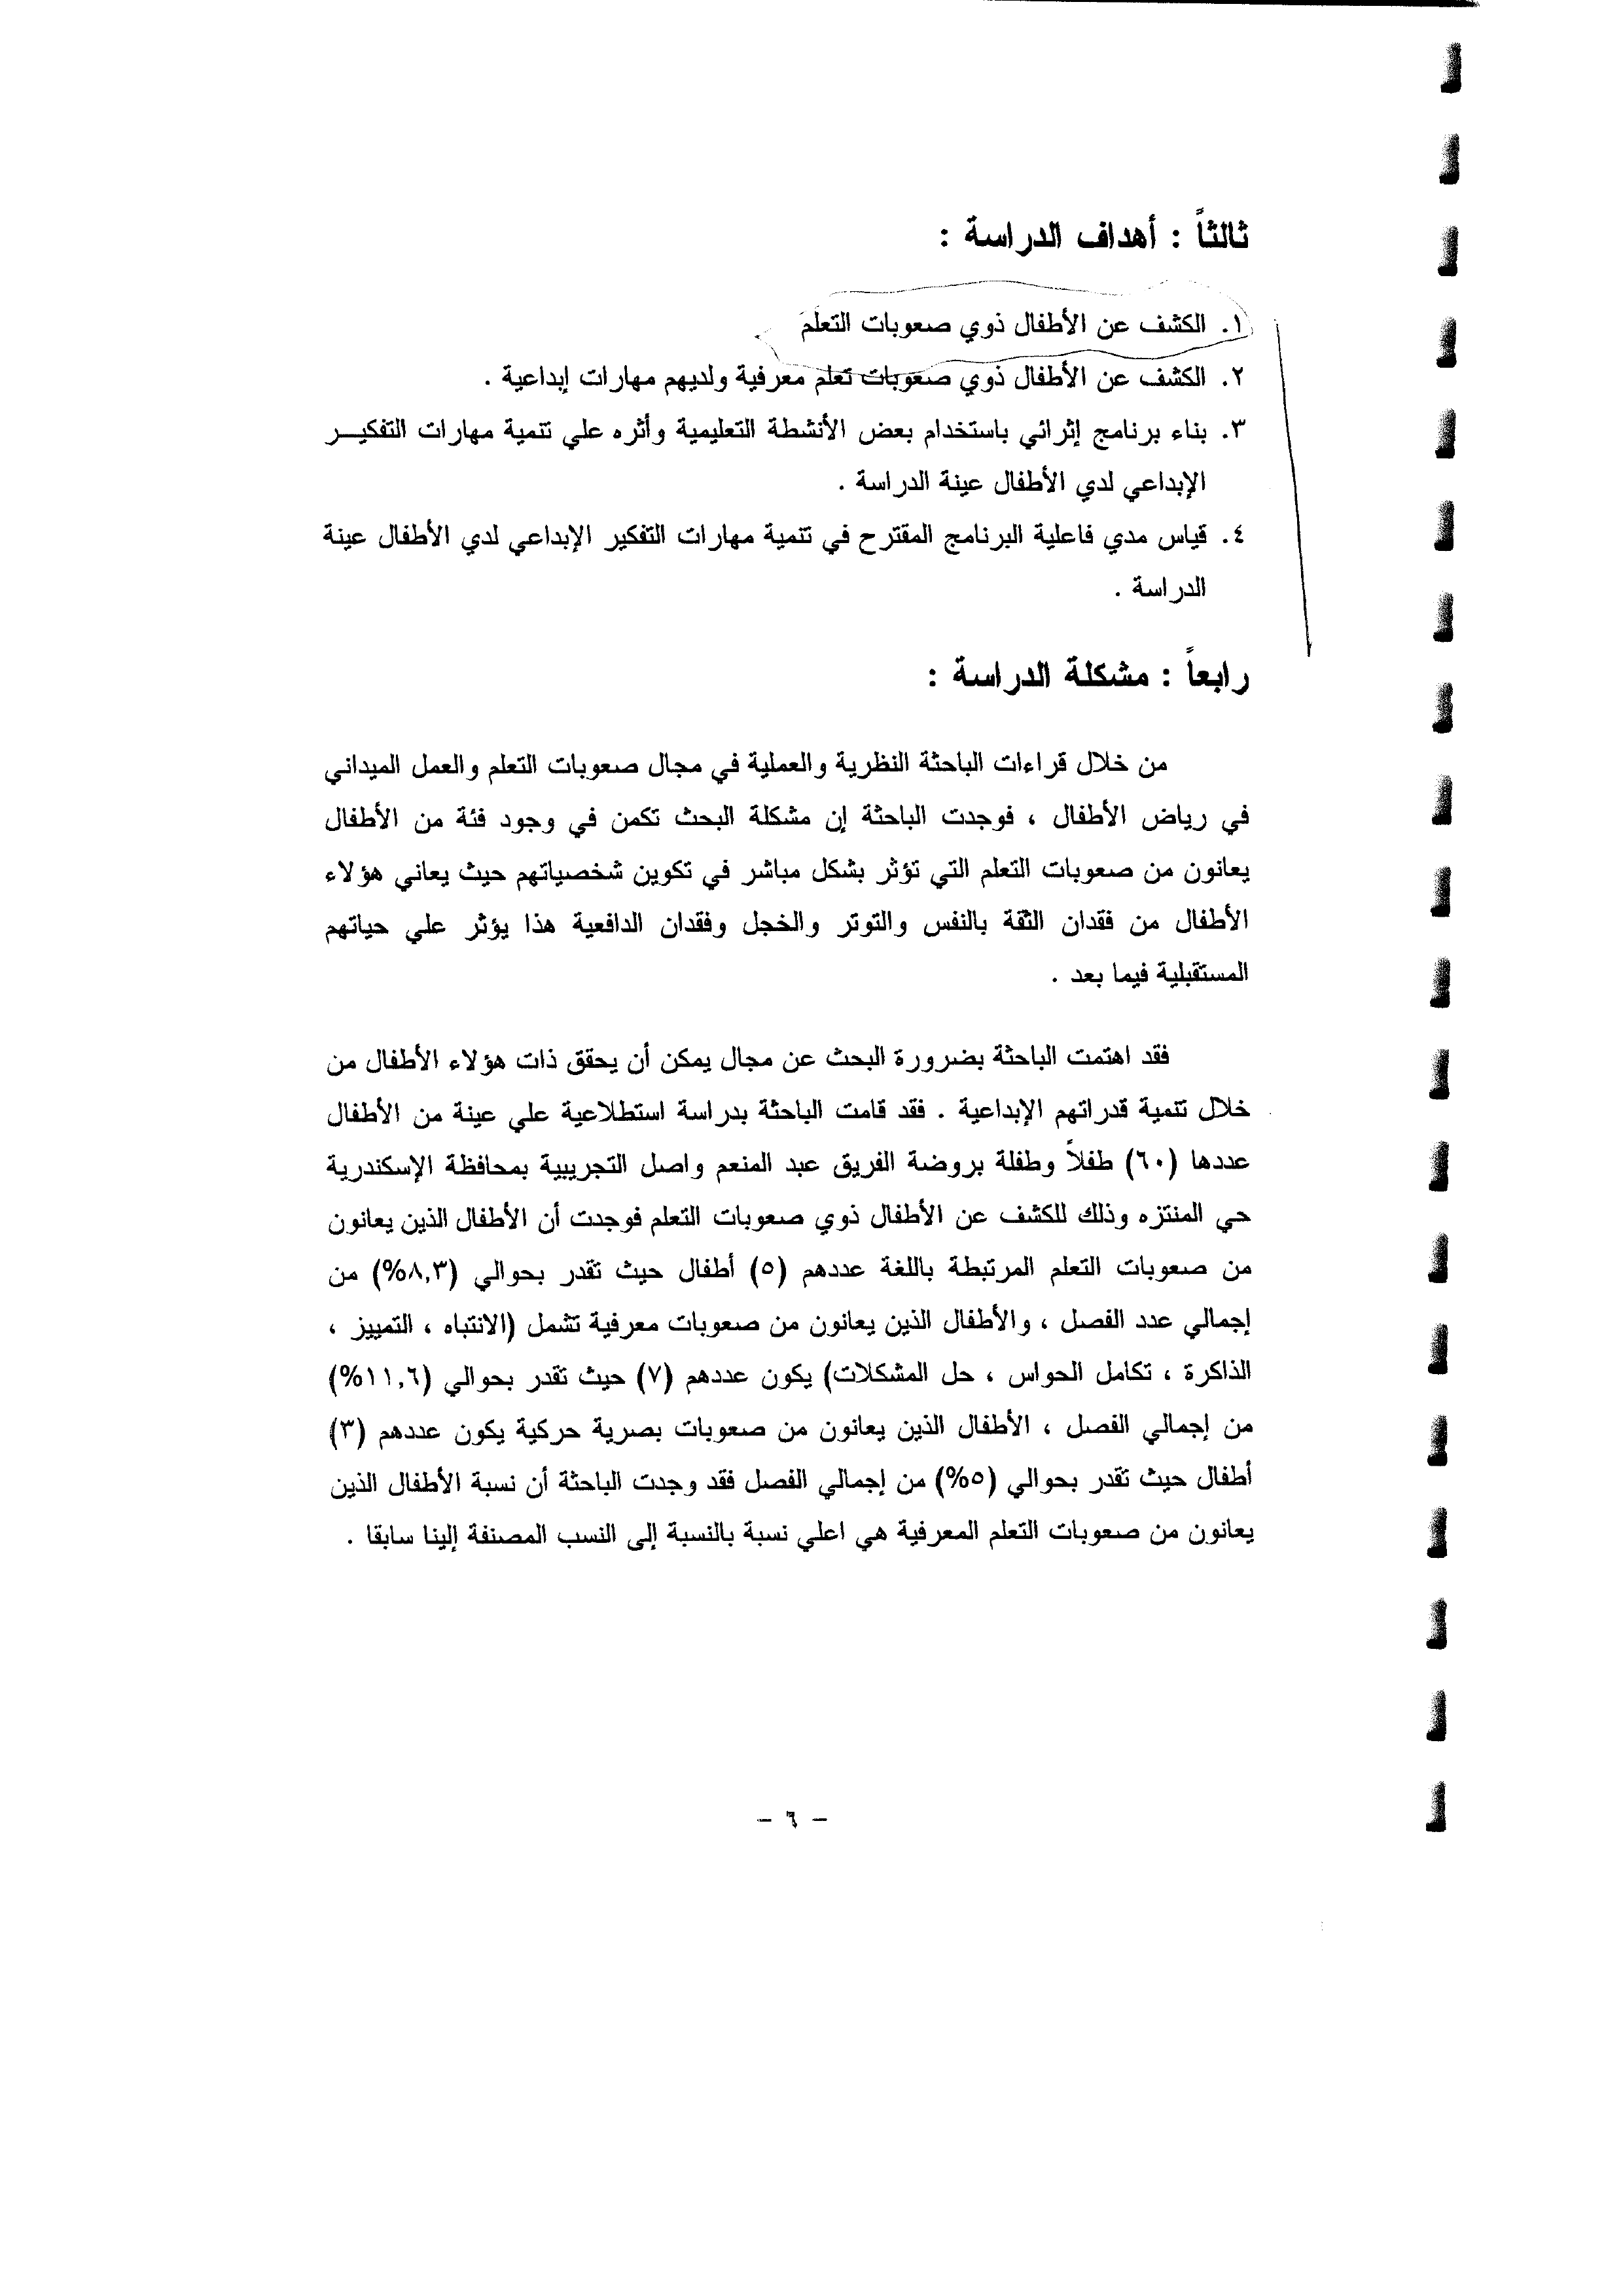 ثالثاً : أهداف الدراسة :
١. الكشف عن الأطفال ذوي صعوبات التعلم
٢. الكشف عن الأطفال ذوي صعوبات تعلم معرفية ولديهم مهارات إبداعية .
٣. بناء برنامج إثرائي باستخدام بعض الأنشطة التعليمية وأثره علي تنمية مهارات التفكيــر
الإبداعي لدي الأطفال عينة الدراسة .
٤. قياس مدي فاعلية البرنامج المقترح في تنمية مهارات التفكير الإبداعي لدي الأطفال عينة
الدراسة .
رابعاً : مشكلة الدراسة :
من خلال قراءات الباحثة النظرية والعملية في مجال صعوبات التعلم والعمل الميداني
في رياض الأطفال ، فوجدت الباحثة إن مشكلة البحث تكمن في وجود فئة من الأطفال
يعانون من صعوبات التعلم التي تؤثر بشكل مباشر في تكوين شخصياتهم حيث يعاني هؤلاء
الأطفال من فقدان الثقة بالنفس والتوتر والخجل وفقدان الدافعية هذا يؤثر علي حياتهم
المستقبلية فيما بعد .
فقد اهتمت الباحثة بضرورة البحث عن مجال يمكن أن يحقق ذات هؤلاء الأطفال من
خلال تنمية قدراتهم الإبداعية . فقد قامت الباحثة بدراسة استطلاعية علي عينة من الأطفال
عددها (٦٠) طفلاً وطفلة بروضة الفريق عبد المنعم واصل التجريبية بمحافظة الإسكندرية
حي المنتزه وذلك للكشف عن الأطفال ذوي صعوبات التعلم فوجدت أن الأطفال الذين يعانون
من صعوبات التعلم المرتبطة باللغة عددهم (٥) أطفال حيث تقدر بحوالي (٨,٣%) من
إجمالي عدد الفصل ، والأطفال الذين يعانون من صعوبات معرفية تشمل (الانتباه ، التمييز ،
الذاكرة ، تكامل الحواس ، حل المشكلات) يكون عددهم (٧) حيث تقدر بحوالي (١١,٦%)
من إجمالي الفصل ، الأطفال الذين يعانون من صعوبات بصرية حركية يكون عددهم (٣)
أطفال حيث تقدر بحوالي (٥%) من إجمالي الفصل فقد وجدت الباحثة أن نسبة الأطفال الذين
يعانون من صعوبات التعلم المعرفية هي اعلي نسبة بالنسبة إلى النسب المصنفة إلينا سابقا .
- ٦ -